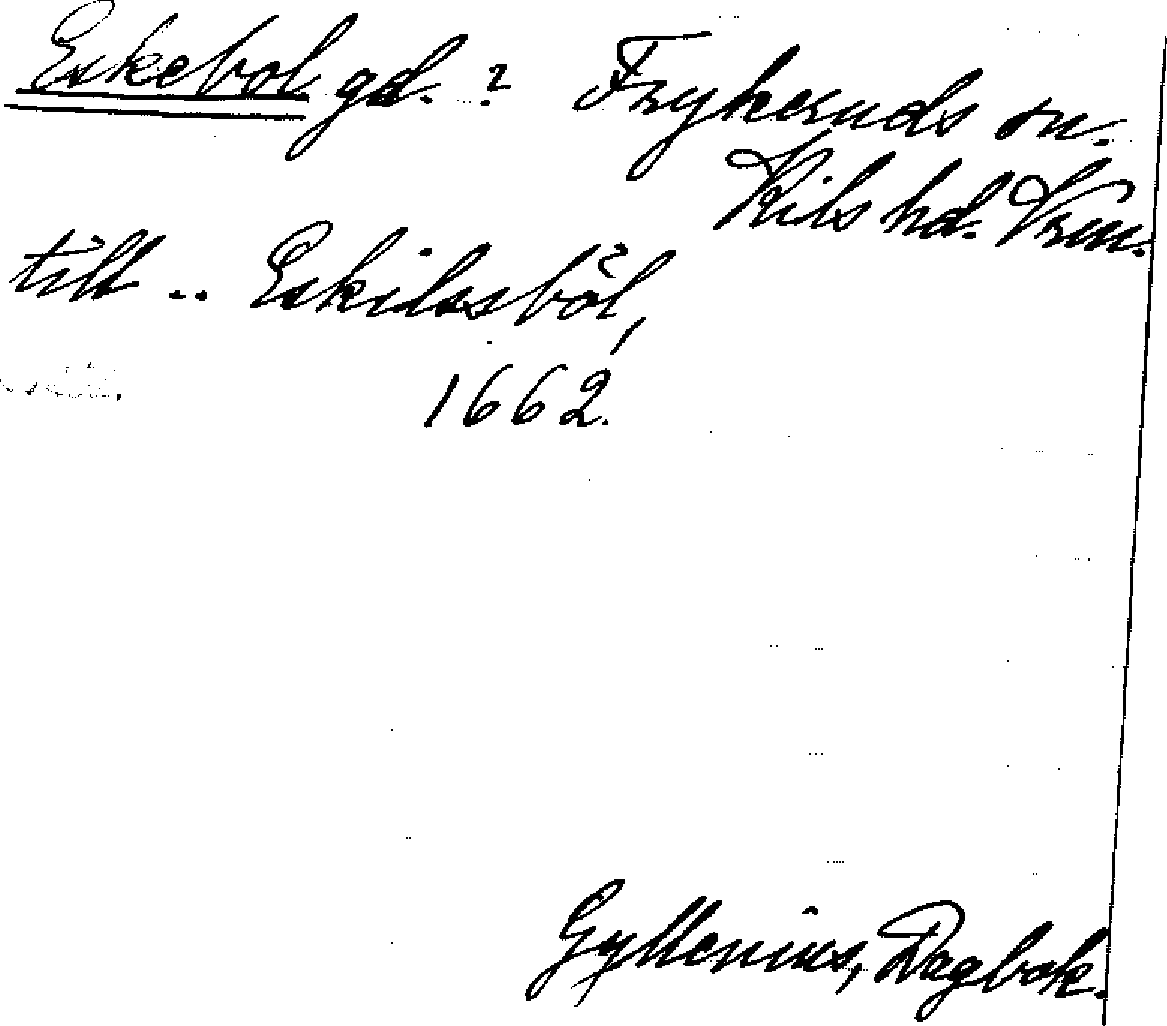 Eskebol gd. ? Frykeruds sn.
Kils hd. Vrm.
till .. Eskilssbõl,
1662.
Gyllenius, Dagbok.